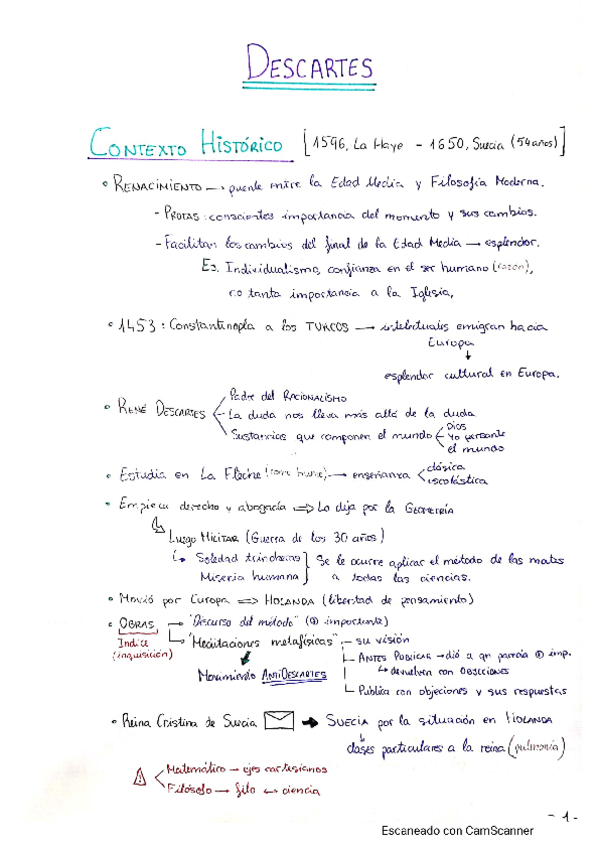 DESCARTES
CONTEXTO HISTÓRICO [1596, La Haye - 1650, Suecia (54 años)]
• RENACIMIENTO → puente entre la Edad Media y Filosofía Moderna.
- PROTAS: conscientes importancia del momento y sus cambios.
- Facilitan los cambios del final de la Edad Media → esplendor.
Ej. Individualismo, confianza en el ser humano (razón),
no tanta importancia a la Iglesia,
• 1453: Constantinopla a los TURCOS → intelectuales emigran hacia
Europa
↓
esplendor cultural en Europa.
• RENÉ DESCARTES
Padre del RACIONALISMO
La duda nos lleva más allá de la duda
Sustancias que componen el mundo
Dios
Yo pensante
el mundo
• Estudia en La Fleche → enseñanza
clásica
escolástica
• Empieza derecho y abogacía ⇒ Lo deja por la GEOMETRÍA
Luego MILITAR (Guerra de los 30 años)
↳ Soledad trincheras
Miseria humana
Se le ocurre aplicar el método de las mates
a todas las ciencias.
• Movió por Europa ⇒ HOLANDA (libertad de pensamiento)
• OBRAS
Indice
(inquisición)
→ "Discurso del método" (⊕ importante)
→ "Meditaciones metafísicas" - su visión
Movimiento ANTIDESCARTES
ANTES PUBLICAR → dió a gn parecía ⊕ imp.
↳ devuelven con OBJECIONES
Publica con objeciones y sus respuestas
• Reina Cristina de Suecia → SUECIA por la situación en HOLANDA
↓
clases particulares a la reina (pulmonía)
⚠ Matemático → ejes cartesianos
Filósofo → filo ↔ ciencia
- 1 -
Escaneado con CamScanner